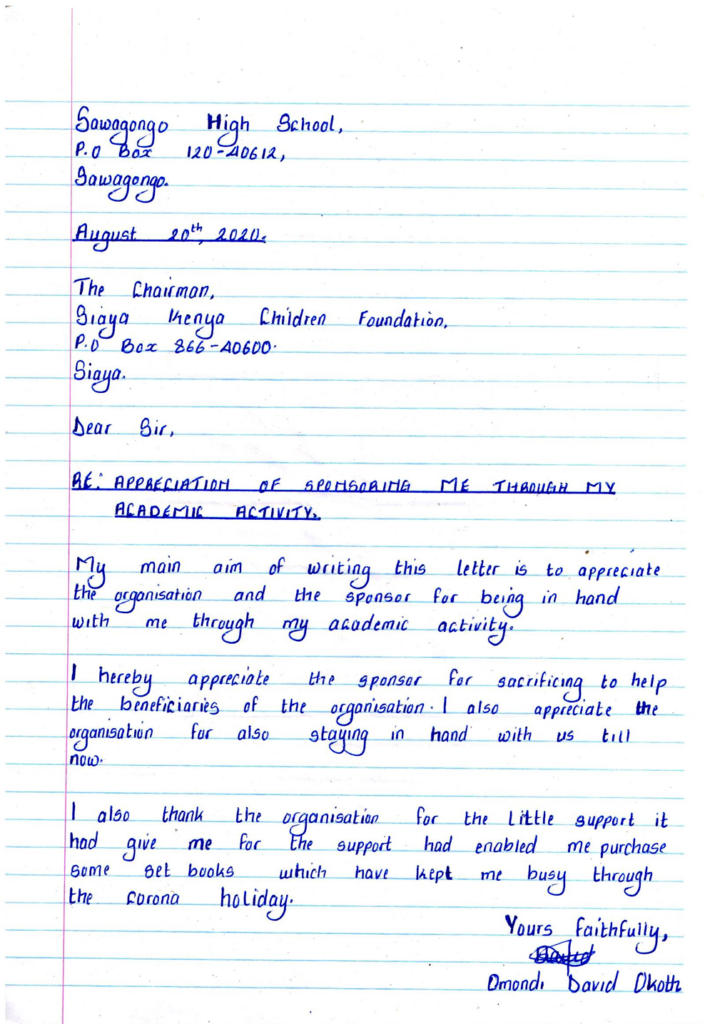 Sawagongo High School,
P.O Box 120-40612,
Sawagongo.
August 20th, 2020.
The Chairman,
Siaya Kenya Children Foundation.
P.O Box 866-40600.
Siaya.
Dear Sir,
RE: APPRECIATION OF SPONSORING ME THROUGH MY
ACADEMIC ACTIVITY.
My main aim of writing this letter is to appreciate
the organisation and the sponsor for being in hand
with me through my academic activity.
I hereby appreciate the sponsor for sacrificing to help
the beneficiaries of the organisation. I also appreciate the
organisation for also staying in hand with us till
now.
I also thank the organisation for the little support it
had give me for the support had enabled me purchase
some set books which have kept me busy through
the corona holiday.
Yours faithfully,
David
Omondi David Okoth